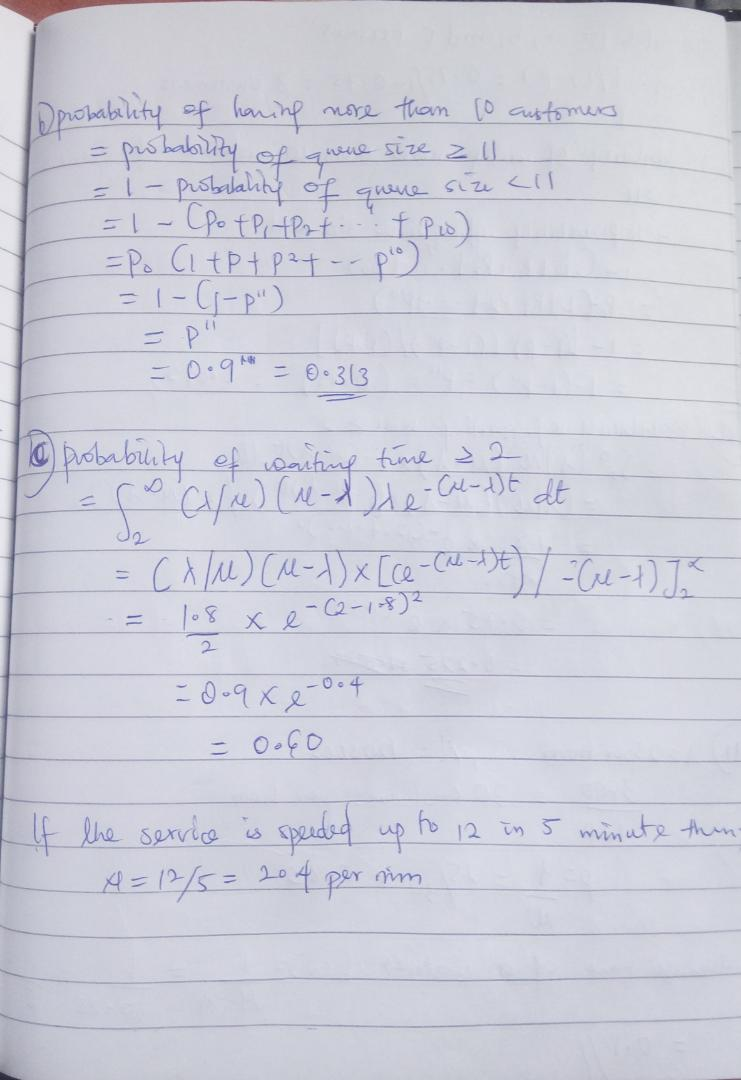 b) probability of having more than 10 customers
= probability of queue size ≥ 11
= 1 - probability of queue size < 11
= 1 - (P0 + P1 + P2 + ... + P10)
= P0 (1 + P + P2 + -- P10)
= 1 - (1 - P11)
= P11
= 0.9 = 0.313
c) probability of waiting time ≥ 2
= ∫2∞ (λ/μ) (μ-λ) λ e-(μ-λ)t dt
= (λ/μ) (μ-λ) x [(e-(μ-λ)t) / -(μ-λ)]2∞
= 1.8/2 x e-(2-1.8)2
= 0.9 x e-0.4
= 0.60
If the service is speeded up to 12 in 5 minute then
μ = 12/5 = 2.4 per min